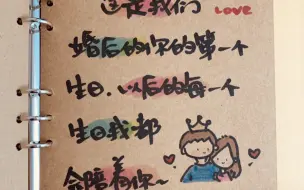 这是我们 LOVE
婚后的你的第一个
生日，以后的每一个
生日我都
会陪着你~